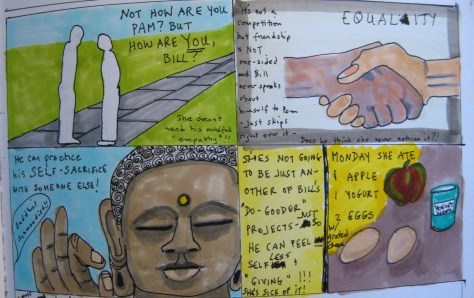 NOT HOW ARE YOU
PAM? BUT
HOW ARE YOU,
BILL?
She doesn't
need his mindful
"empathy"!!
It's not a
competition
but friendship
is NOT
one-sided
and Bill
never speaks
about
himself to Pam
- just skips
right over it -
EQUALITY
Does he think she never notices it?!
He can practice
his SELF-SACRIFICE
with someone else!
SHE'S NOT GOING
TO BE JUST AN-
OTHER OF BILL'S
"DO-GOODER"
PROJECTS - JUST
SO
HE CAN FEEL
LESS
SELFISH +
"GIVING"!!!
SHE'S SICK OF IT!
MONDAY SHE ATE
1 APPLE
1 YOGURT
2 EGGS
w/
grated